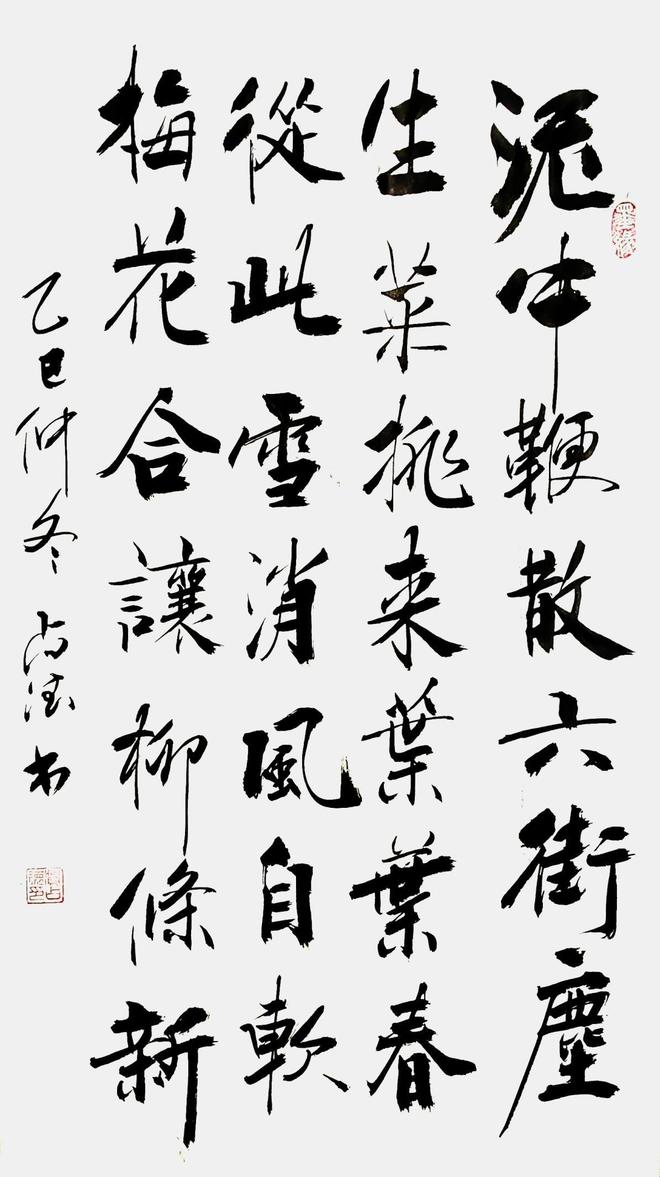 泥中鞭散六街塵
生菜挑来葉葉春
從此雪消風自軟
梅花合讓柳條新
乙巳仲冬 占 书
墨缘